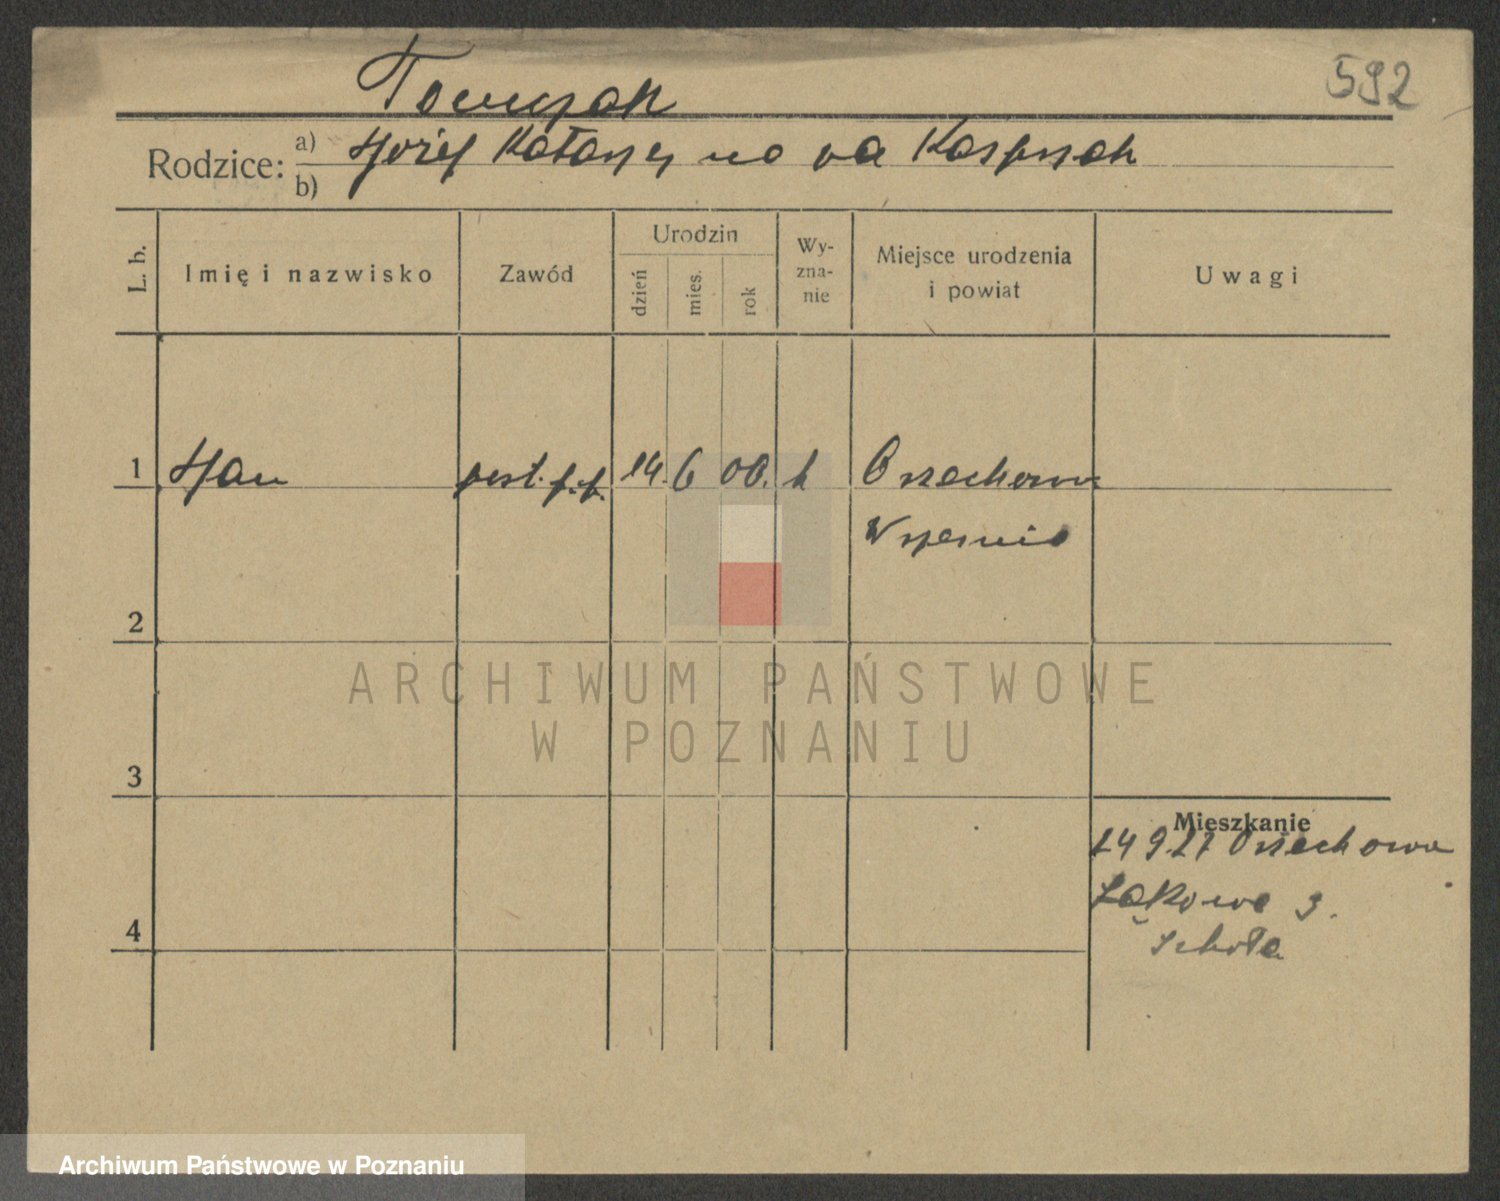 592
Tomczak
Rodzice: a) Józef Katarzyna va Kasprzak
b)
L. b.
Imię i nazwisko
Zawód
Urodzin
dzień
mies.
rok
Wy-
zna-
nie
Miejsce urodzenia
i powiat
Uwagi
1 Jan post. p.p. 14. 6 00. k Orzechowo
Września
2
3
4
Mieszkanie
14 9.27 Orzechowo
Łąkowa 3.
Szkoła
ARCHIWUM PAŃSTWOWE
W POZNANIU
Archiwum Państwowe w Poznaniu